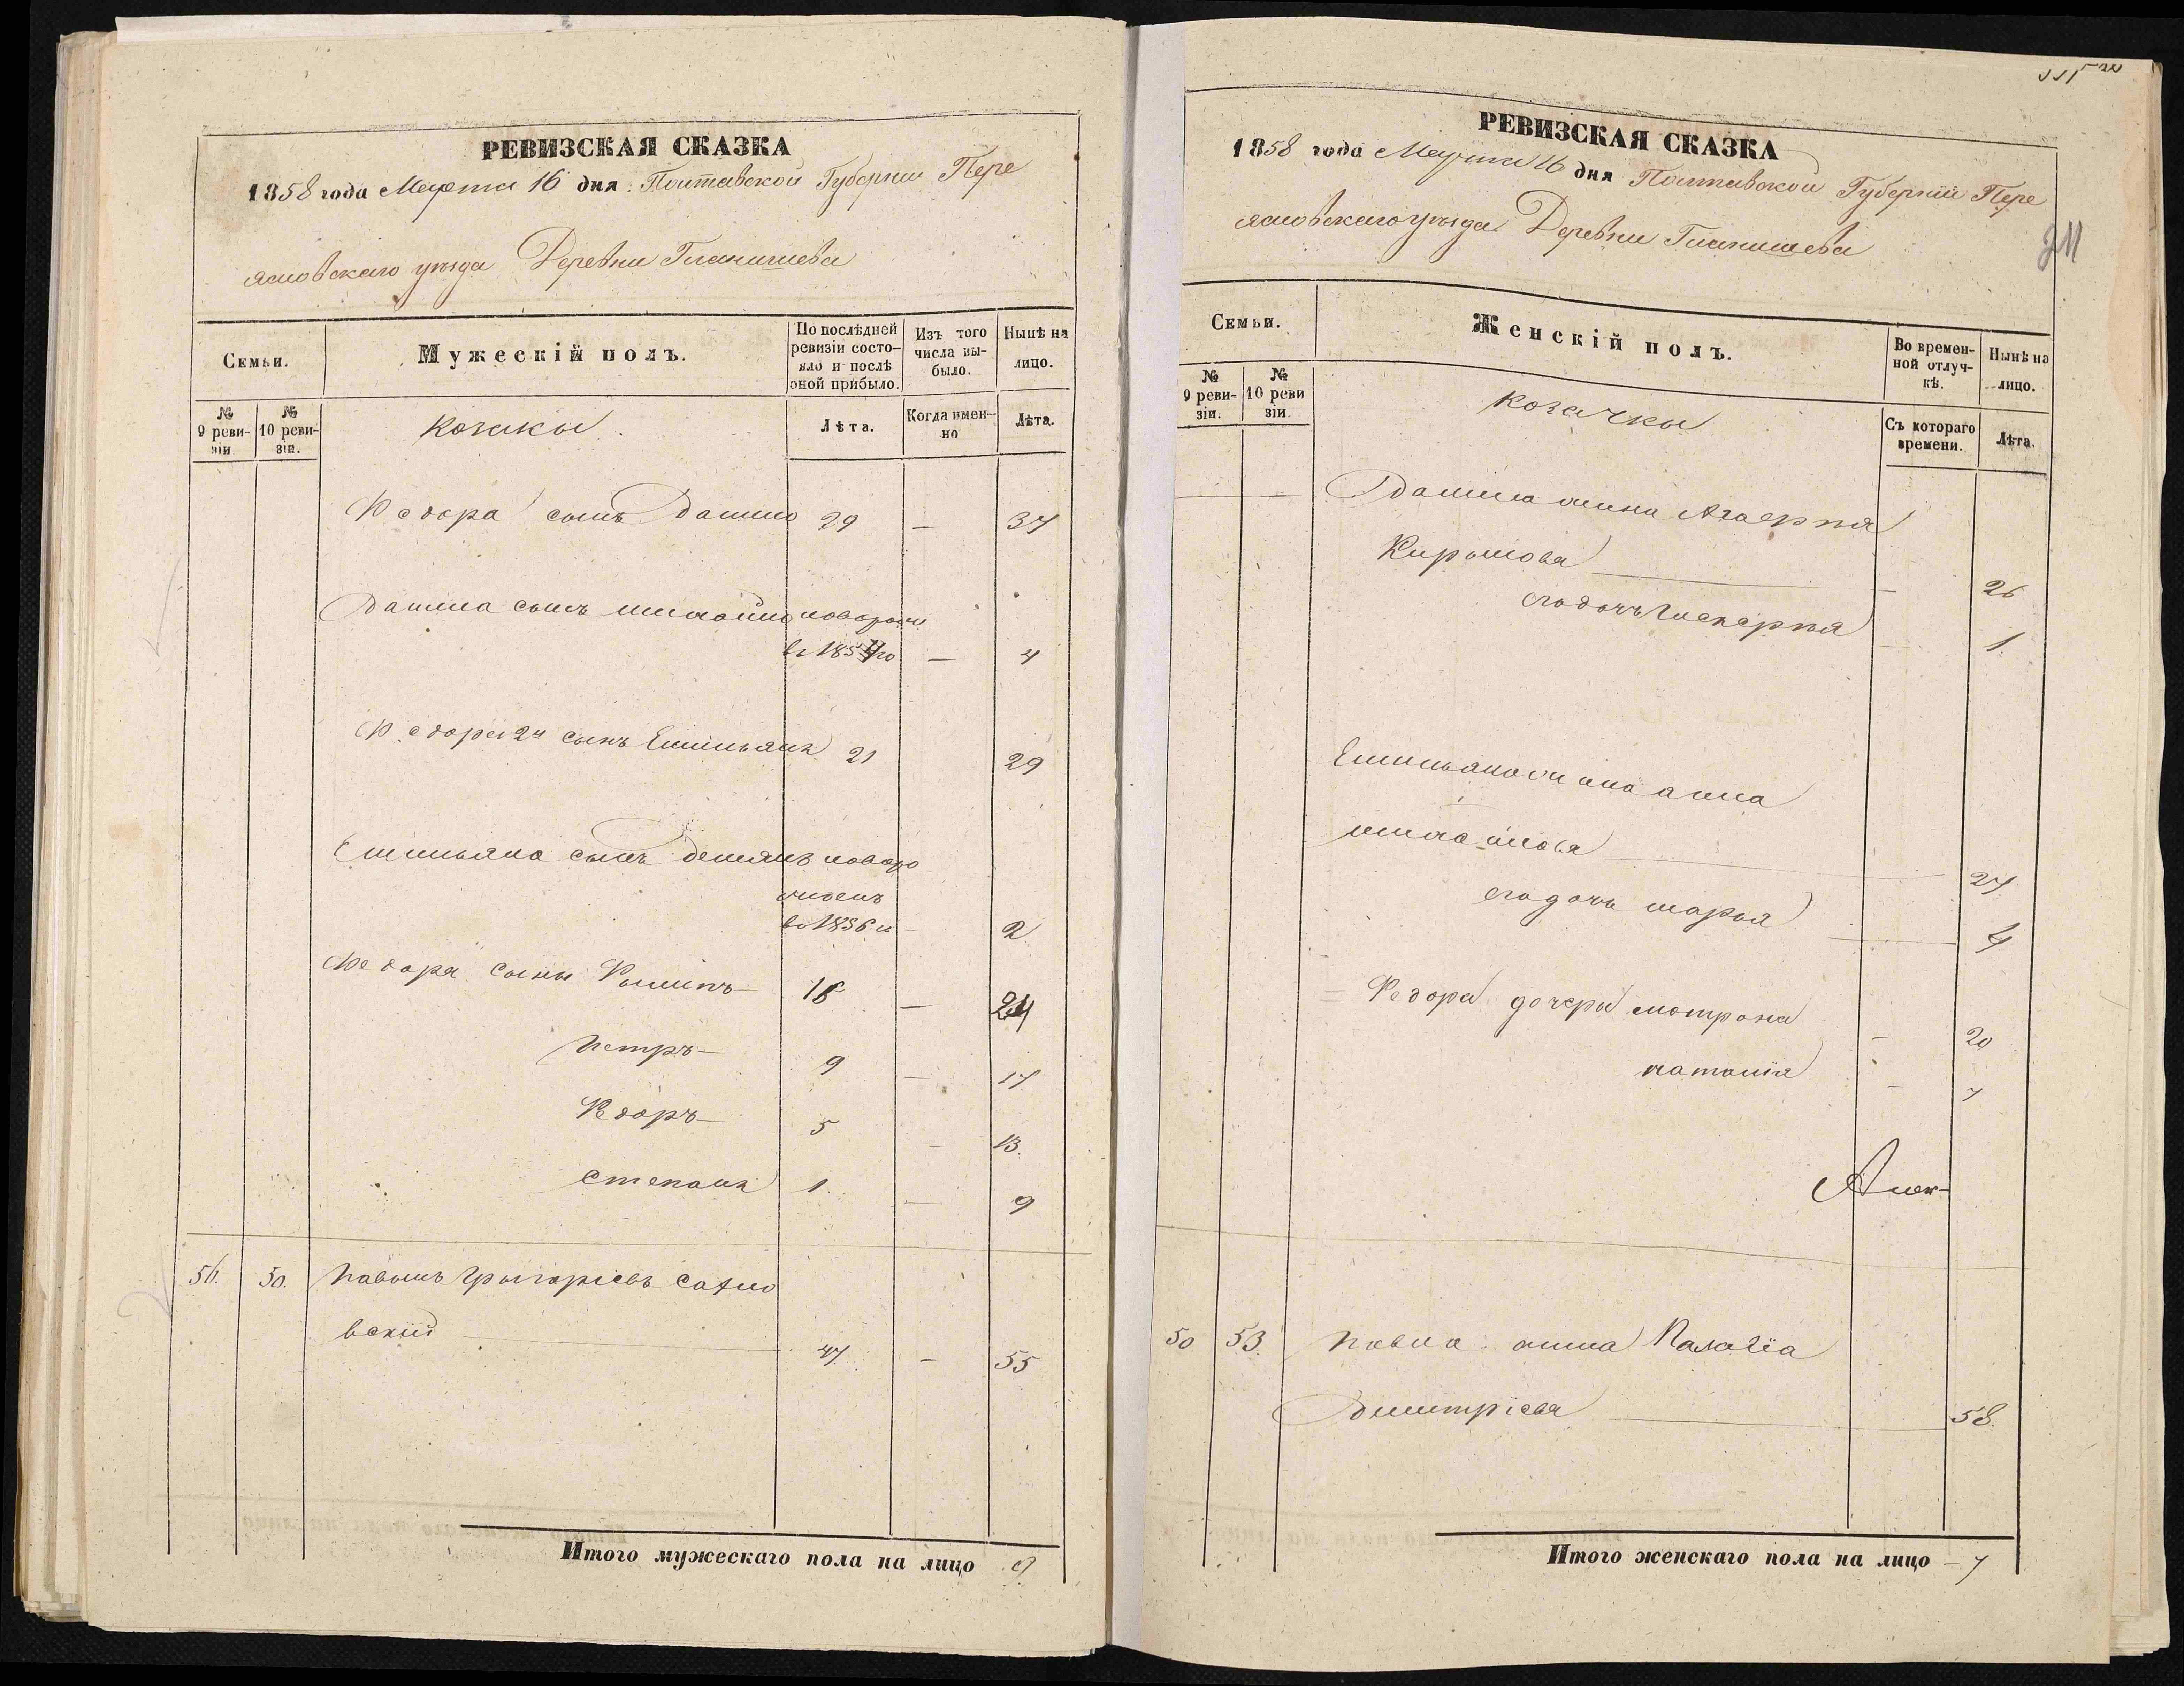 РЕВИЗСКАЯ СКАЗКА
1858 года Марта 16 дня Полтавской Губернии Пере
яславскаго уезда Деревни Гланишева
Семьи.
Мужескій полъ.
По послѣдней ревизіи состояло и послѣ оной прибыло.
Изъ того числа выбыло.
Нынѣ на лицо.
№ 9 ревизіи.
№ 10 ревизіи.
козаки
Лѣта.
Когда именно
Лѣта.
Федора сынъ Данило 29 — 37
Данила сынъ михайло новорож
в 1854 го — 4
Федора 2й сынъ Емильянъ 21 29
Емильяна сынъ демянъ новоро
жденъ
в 1856 м — 2
Федора сыны Филипъ 16 — 24
Петръ 9 — 17
Федоръ 5 — 13
степанъ 1 — 9
56. 50. Павелъ Григоріевъ
вский 47 — 55
Итого мужескаго пола на лицо 9
РЕВИЗСКАЯ СКАЗКА
1858 года Марта 16 дня Полтавской Губернии Пере
яславскаго уезда Деревни Гланишева
311
Семьи.
Женскій полъ.
Во временной отлучкѣ.
Нынѣ на лицо.
№ 9 ревизіи.
№ 10 ревизіи.
козачки
Съ котораго времени.
Лѣта.
Данила жина
Кирилова — 26
его дочъ — 1
Емильяна жина анна
михайлова 27
его дочь марья 4
Федора дочери мотрона — 20
наталія — 7
50 53 Павла жина Палагія
димитріева 58
Итого женскаго пола на лицо — 7